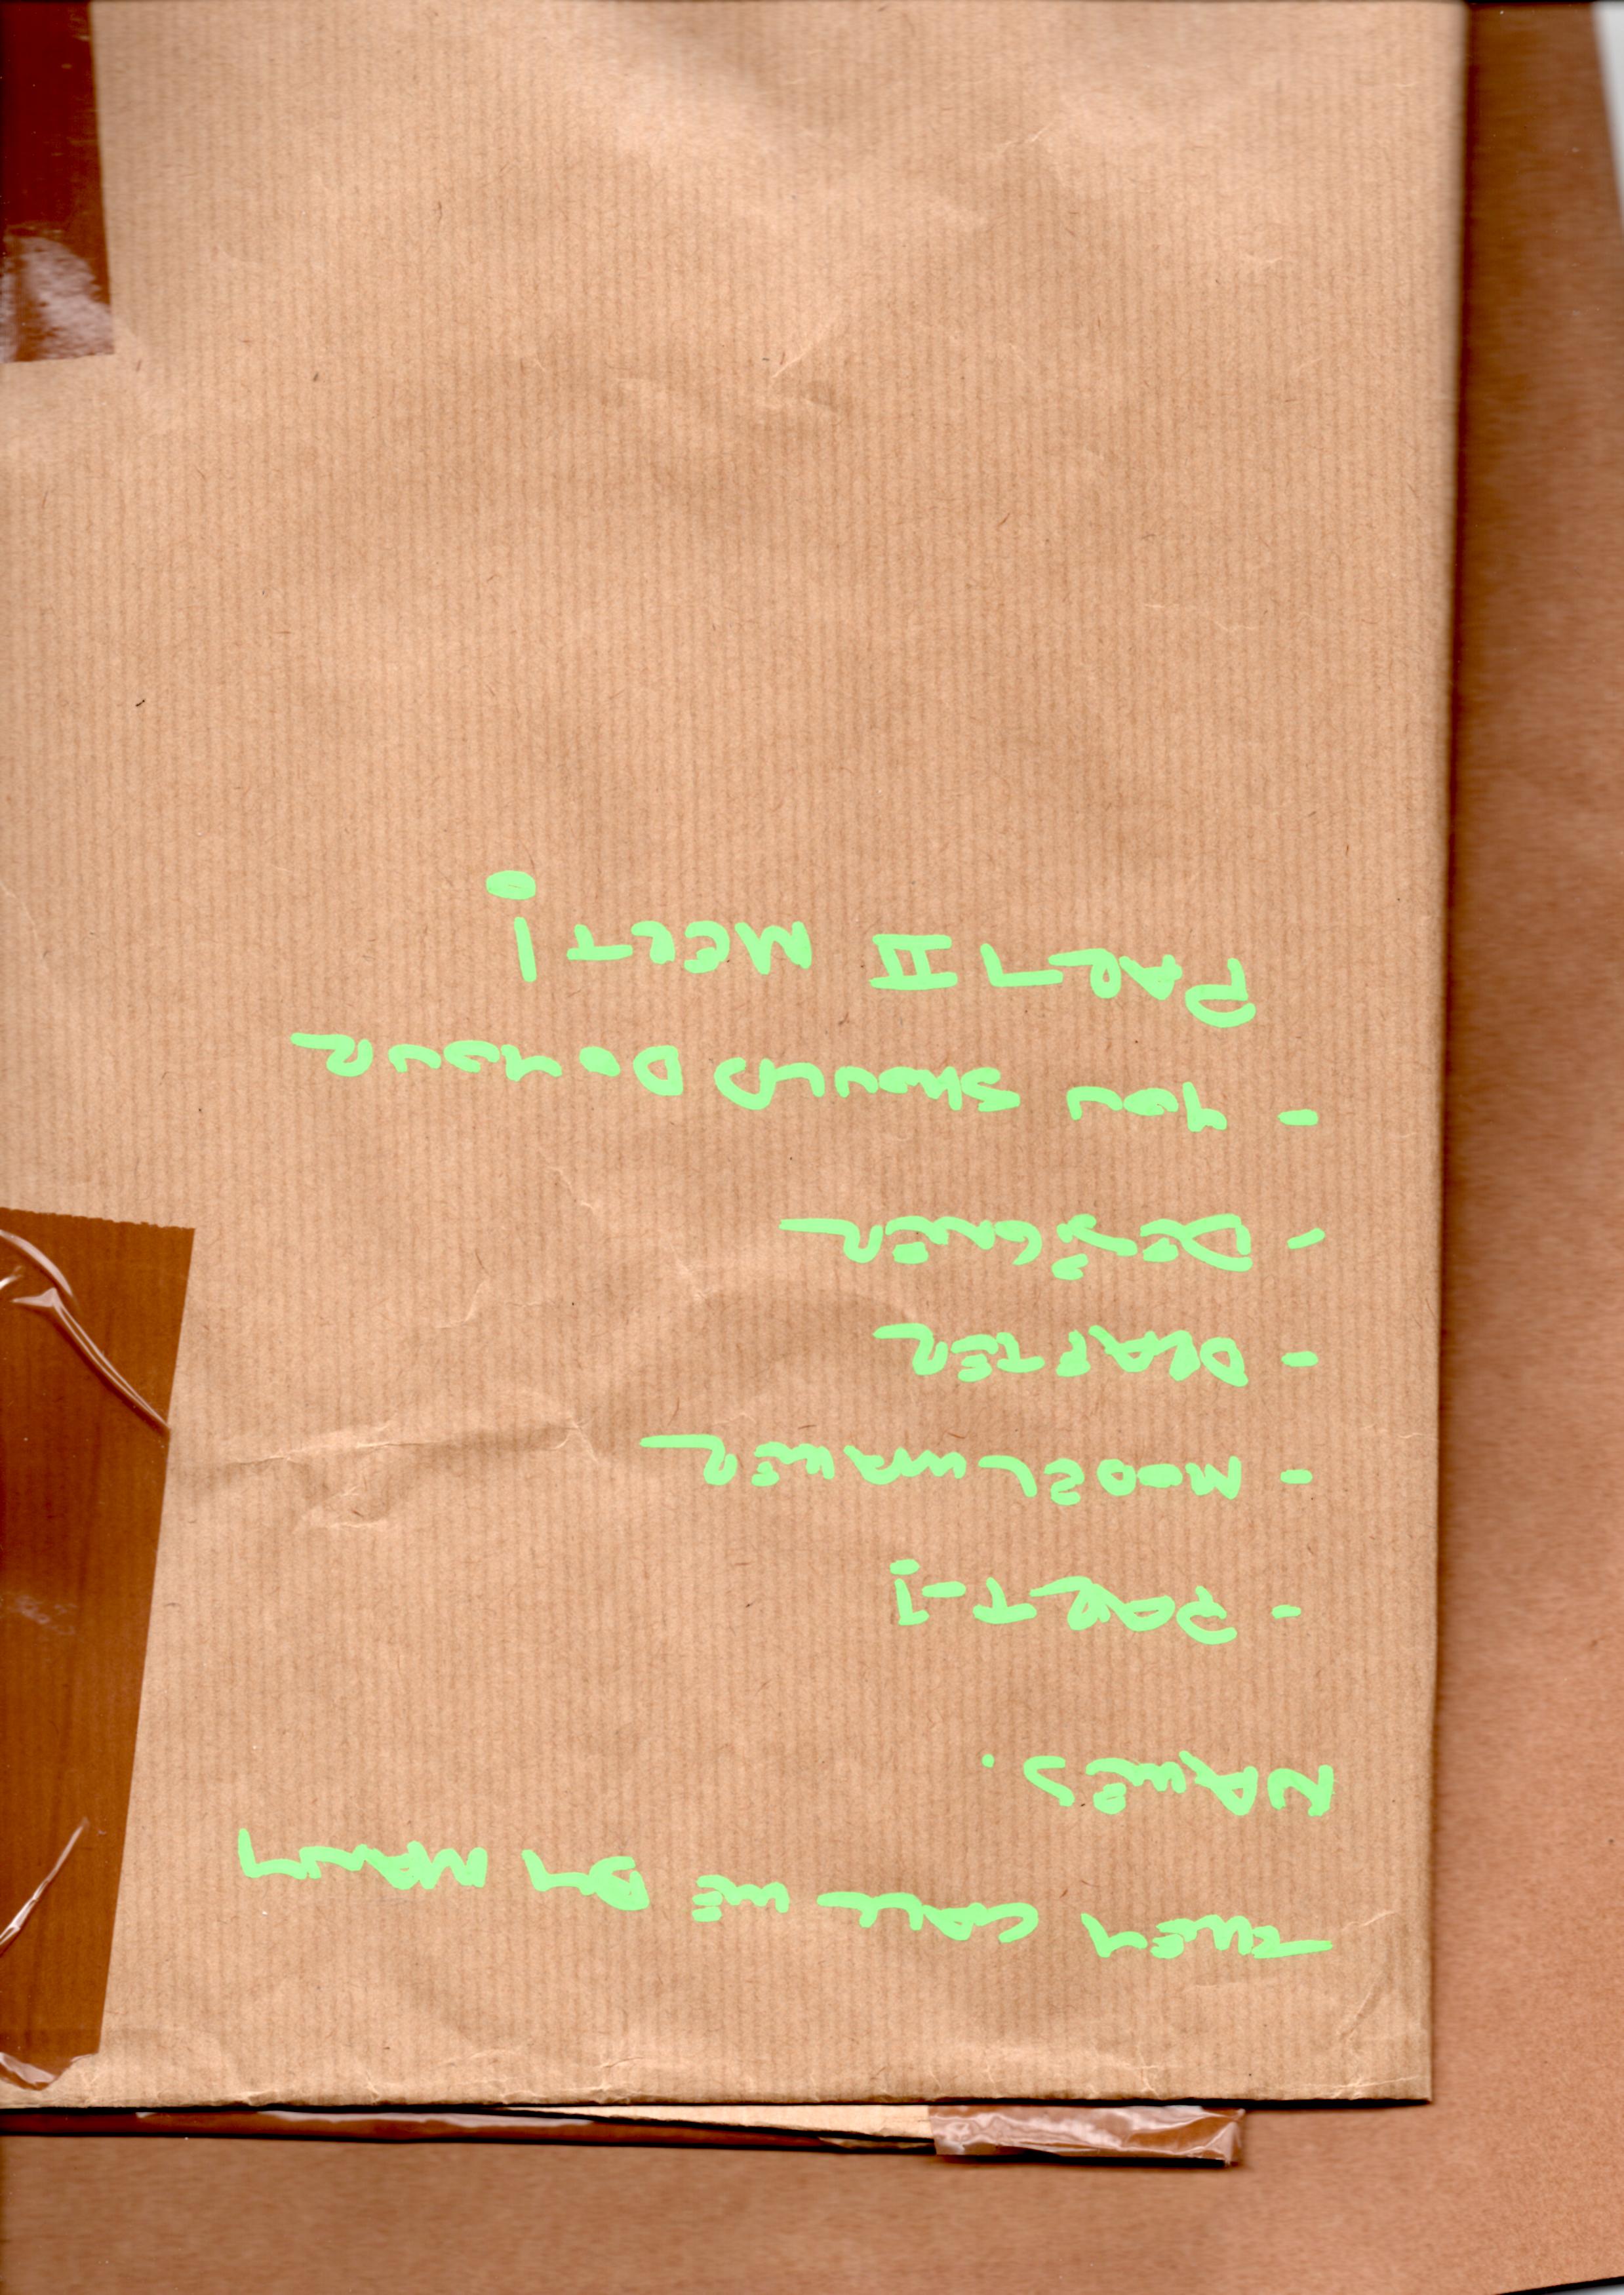 THEY CALL ME BY MANY
NAMES.
- PART-i
- MODELMAKER
- DRAFTER
- DESiGNER
- YOU SHOULD DO YOUR
PART II